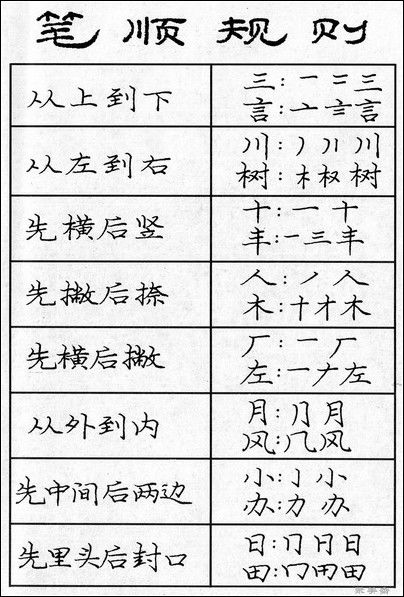 笔顺规则
从上到下
三：一 二 三
言：亠 言
从左到右
川：丿 川
树：木 权 树
先横后竖
十：一 十
丰：一 三 丰
先撇后捺
人：丿 人
木：十 才 木
先横后撇
厂：一 厂
左：一 ナ 左
从外到内
月：⺆ 月
风：几 风
先中间后两边
小：亅 小
办：力 办
先里头后封口
日：冂 日
田：冂 田